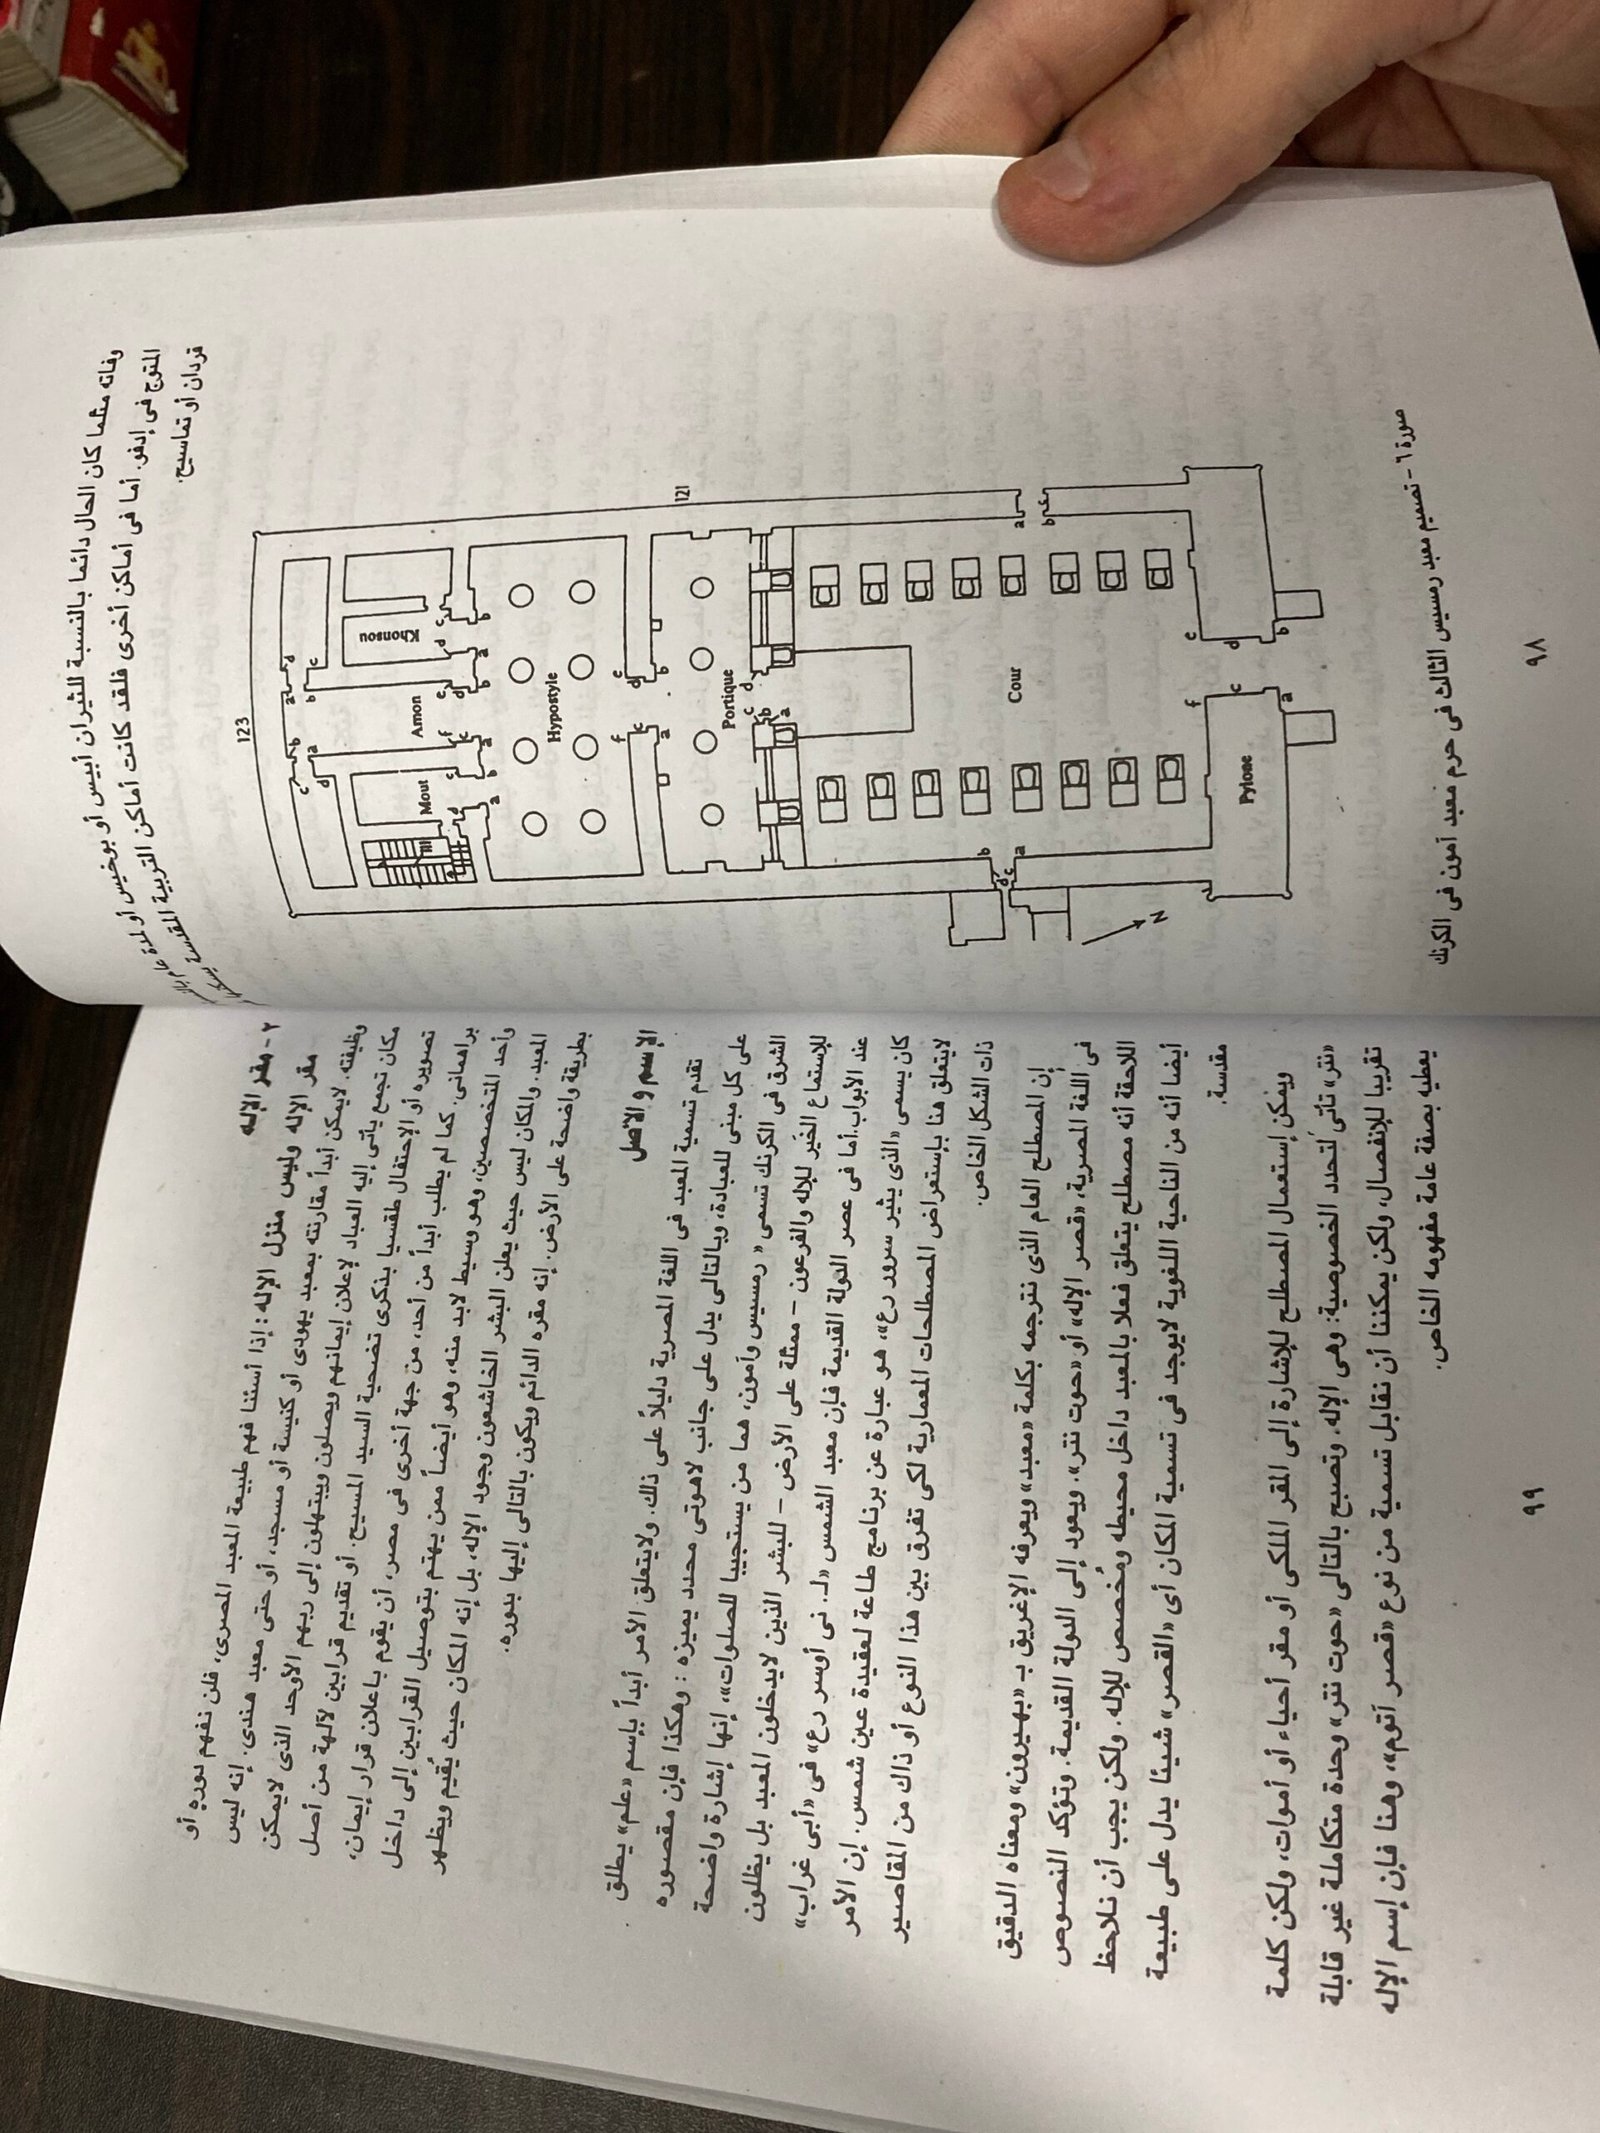 وفاته مثلما كان الحال دائما بالنسبة للثيران أبيس أو بوخيس أو لمدة عام
المتوج فى إدفو. أما فى أماكن أخرى فلقد كانت أماكن التربية المقدسة
قردان أو تماسيح.
123
121
Khonsou
Amon
Mout
Hypostyle
Portique
Cour
Pylone
N
صورة ٦ - تصميم معبد رمسيس الثالث فى حرم معبد آمون فى الكرنك
٩٨
٢ - مقر الإله
مقر الإله وليس منزل الإله : إذا أسئنا فهم طبيعة المعبد المصرى، فلن نفهم دوره أو
وظيفته. لايمكن أبداً مقارنته بمعبد يهودى أو كنيسة أو مسجد، أو حتى معبد هندى. إنه ليس
مكان تجمع يأتى إليه العباد لإعلان إيمانهم ويصلون ويبتهلون إلى ربهم الأوحد الذى لايمكن
تصويره أو الإحتفال طقسيا بذكرى تضحية السيد المسيح. أو تقديم قرابين لآلهة من أصل
براهمانى. كما لم يطلب أبداً من أحد، من جهة أخرى فى مصر، أن يقوم باعلان قرار إيمان،
وأحد المتخصصين، وهو وسيط لابد منه، وهو أيضاً ممن يهتم بتوصيل القرابين إلى داخل
المعبد. والمكان ليس حيث يعلن البشر الخاشعون وجود الإله، بل إنه المكان حيث يُقيم ويظهر
بطريقة واضحة على الأرض. إنه مقره الدائم ويكون بالتالى إليها بدوره.
الإسم و الأصل
تقدم تسمية المعبد فى اللغة المصرية دليلاً على ذلك. ولايتعلق الأمر أبداً بإسم «علم» يطلق
على كل مبنى للعبادة، وبالتالى يدل على جانب لاهوتى محدد يميزه : وهكذا فإن مقصوره
الشرق فى الكرنك تسمى «رمسيس وآمون، هما من يستجيبا للصلوات»، إنها إشارة واضحة
للإستماع الخَير للإله والفرعون - ممثلة على الأرض - للبشر الذين لايدخلون المعبد بل يظلون
عند الأبواب. أما فى عصر الدولة القديمة فإن معبد الشمس «لـ نى أوسر رع» فى «أبى غراب»
كان يسمى «الذى يثير سرور رع»، هو عبارة عن برنامج طاعة لعقيدة عين شمس. إن الأمر
لايتعلق هنا بإستعراض المصطلحات المعمارية لكى تفرق بين هذا النوع أو ذاك من المقاصير
ذات الشكل الخاص.
إن المصطلح العام الذى نترجمه بكلمة «معبد» ويعرفه الإغريق بـ «بهيرون» ومعناه الدقيق
فى اللغة المصرية، «قصر الإله» أو «حوت نتر». ويعود إلى الدولة القديمة. وتؤكد النصوص
اللاحقة أنه مصطلح يتعلق فعلا بالمعبد داخل محيطه ومُخصص للإله. ولكن يجب أن نلاحظ
أيضا أنه من الناحية اللغوية لايوجد فى تسمية المكان أى «القصر» شيئا يدل على طبيعة
مقدسة.
ويمكن إستعمال المصطلح للإشارة إلى المقر الملكى أو مقر أحياء أو أموات، ولكن كلمة
«نتر» تأتى لتحدد الخصوصية: وهى الإله. وتصبح بالتالى «حوت نتر» وحدة متكاملة غير قابلة
تقريبا للإنفصال، ولكن يمكننا أن نقابل تسمية من نوع «قصر آتوم»، وهنا فإن إسم الإله
يعطيه بصفة عامة مفهومه الخاص.
٩٩